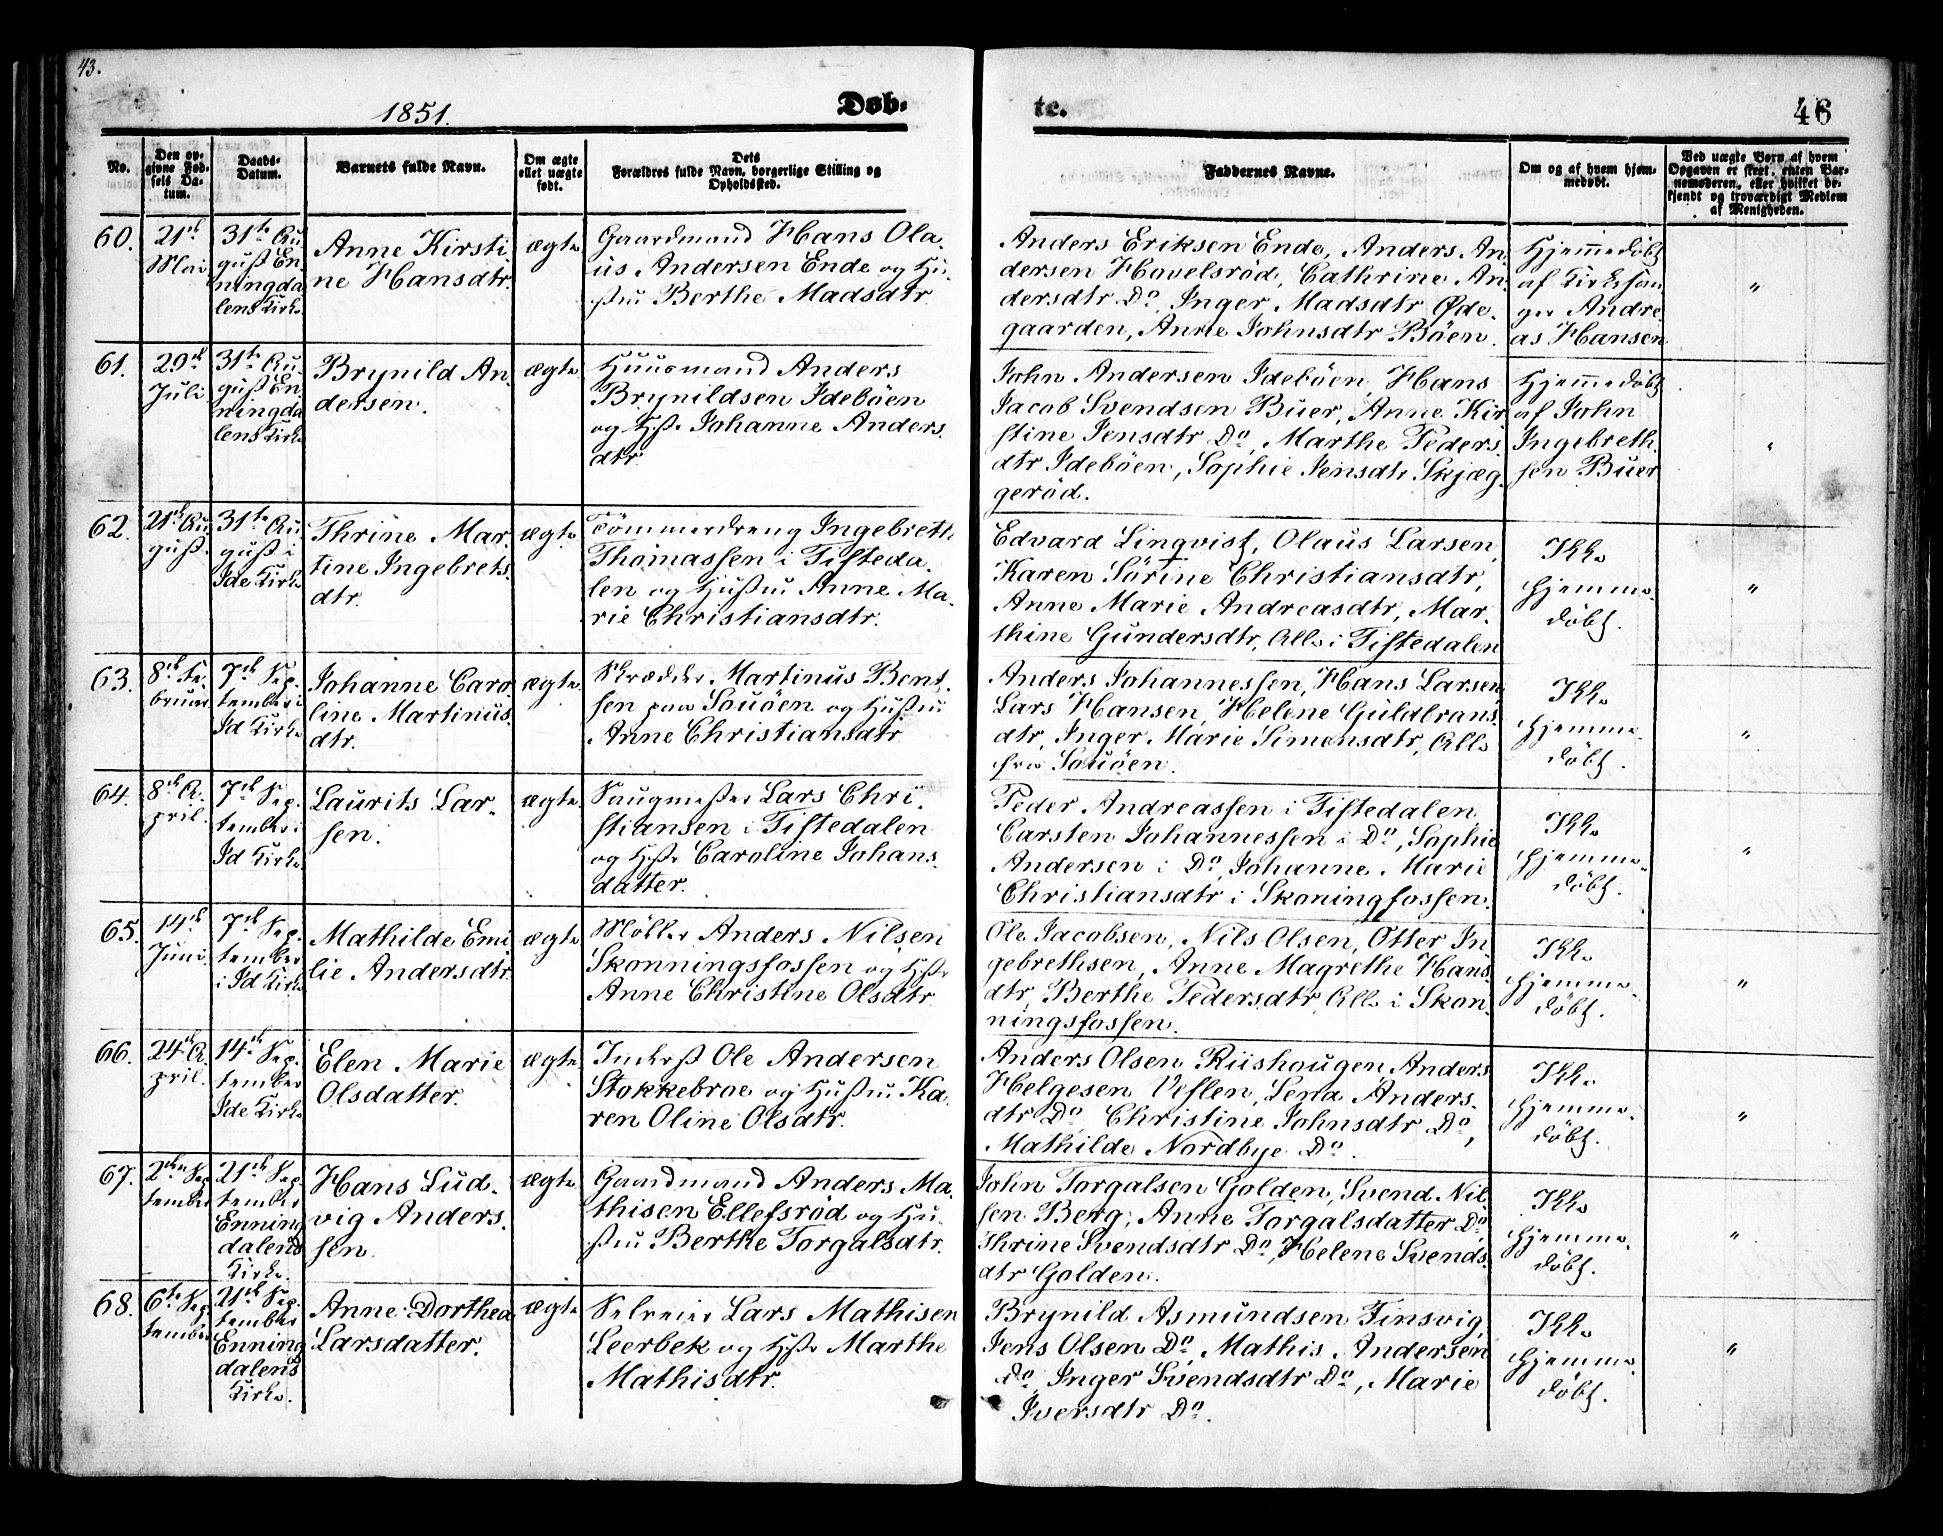 43.
1851.
Døb-
te.
46
No.
Den op-
givne Fød-
sels Da-
tum.
Daabs-
Datum.
Barnets fulde Navn.
Om ægte
ellet uægte
født.
Dets
Forældres fulde Navn, borgerlige Stilling og
Opholdssted.
Faddernes Navne.
Om og af hvem hjem-
medøbt.
Ved uægte Børn af hvem
Opgaven er skeet, enten Bar-
nemoderen, eller hvilket be-
kjendt og troværdigt Medlem
af Menigheden.
60.
21de
Mai
31te Au-
gust En-
ningda
lens Kirke
Anne Kirsti-
ne Hansdtr.
ægte
Gaardmand Hans Ola-
us Andersen Ende og Hu-
stru Berthe Madsdtr
Anders Eriksen Ende, Anders An-
dersen Hovelsröd, Cathrine An-
dersdtr Do, Inger Madsdtr Øde-
gaarden, Anne Johnsdtr Böen.
Hjemmedöbt
af Kirkesan
ger Andre
as Hansen
"
61.
29de
Juli
31te Au-
gust En-
ningda
lens Kirke
Brynild An-
dersen.
ægte
Huusmand Anders
Brynildsen Ideböen
og Hst. Johanne Anders
dtr.
John Andersen Ideböen, Hans
Jacob Svendsen Buer, Anne Kir
stine Jensdtr Do, Marthe Peders
dtr Ideböen, Sophie Jensdtr Skjæg-
geröd.
Hjemmedöbt
af John
Ingebreth-
sen Buer
"
62.
21de Au
gust.
31te Au-
gust i
Ide Kirke
Thrine Mar-
tine Ingebrets-
dtr.
ægte.
Tömmerdreng Ingebreth
Thomassen i Tisteda-
len og Hustru Anne Ma-
rie Christiansdtr.
Edvard Linqvist, Olaus Larsen,
Karen Sörine Christiansdtr,
Anne Marie Andreasdtr, Mar-
thine Gundersdtr, Alle i Tistedalen
Ikke
hjemme-
döbt.
"
63.
8de Fe-
bruar
7de Sep-
tember i
Id Kirke
Johanne Caro
line Martinus
dtr.
ægte.
Skrædder Martinus Bent-
sen paa Sauöen og Hustru
Anne Christiansdtr
Anders Johannessen, Hans Larsen,
Lars Hansen, Helene Guldbrans
dtr, Inger Marie Simensdtr, Alle
fra Sauöen.
Ikke
hjemme-
döbt.
"
64.
8de A-
pril.
7de Sep-
tember i
Id Kirke
Laurits Lar-
sen.
ægte.
Saugmester Lars Chri-
stiansen i Tistedalen
og Hst. Caroline Johans-
datter.
Peder Andreassen i Tistedalen
Carsten Johannessen i Do, Sophie
Andersen i Do, Johanne Marie
Christiansdtr i Skoningfossen.
Ikke
hjemme-
döbt.
"
65.
14de
Juni.
7de Sep-
tember
i Id Kirke
Mathilde Emi
lie Andersdtr.
ægte.
Möller Anders Nilsen
Skonningsfossen og Hst.
Anne Christine Olsdtr
Ole Jacobsen, Nils Olsen, Otter In
gebrethsen, Anne Magrethe Hans
dtr, Berthe Pedersdtr, Alle i Skon-
ningsfossen.
Ikke
hjemme-
döbt.
"
66.
24de A-
pril.
14de Sep-
tember
Ide Kirke
Elen Marie
Olsdatter.
ægte.
Inderst Ole Andersen
Stokkebroe og Hustru Ka-
ren Oline Olsdtr.
Anders Olsen Riishougen, Anders
Helgesen Veslen, Lena Anders-
dtr Do, Christine Johnsdtr Do,
Mathilde Nordbye Do.
Ikke
hjemme-
döbt.
"
67.
2den Sep
tember
21de Sep-
tember
Enning
dalens
Kirke.
Hans Lud-
vig Anders-
sen.
ægte.
Gaardmand Anders Ma-
thisen Ellefsröd og Hu-
stru Berthe Torgalsdtr.
John Torgalsen Golden, Svend Nil
sen Berg, Anne Torgalsdatter Do
Thrine Svendsdtr Do, Helene Svends-
dtr Golden.
Ikke
hjemme-
döbt.
"
68.
6te Sep
tember
21de Sep-
tember
Enning
dalens
Kirke.
Anne Dorthea
Larsdatter.
ægte.
Selveier Lars Mathisen
Leerbek og Hst. Marthe
Mathisdtr.
Brynild Asmundsen Finsvig,
Jens Olsen Do, Mathis Andersen
Do, Inger Svendsdtr Do, Marie
Iversdtr Do.
Ikke
hjemme-
döbt.
"